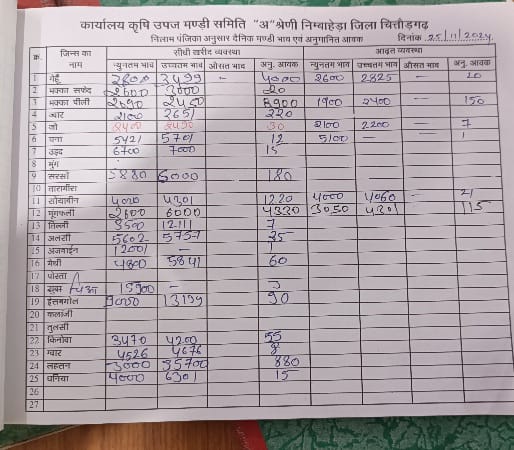 कार्यालय कृषि उपज मण्डी समिति "अ" श्रेणी निम्बाहेड़ा जिला चित्तौड़गढ़
निलाम पंजिका अनुसार दैनिक मण्डी भाव एवं अनुमानित आवक दिनांक 25/11/2024
क्र. जिन्स का नाम सीधी खरीद व्यवस्था आढ़त व्यवस्था
न्यूनतम भाव उच्चतम भाव औसत भाव अनु. आवक न्यूनतम भाव उच्चतम भाव औसत भाव अनु. आवक
1 गेहूँ 2800 3499 — 4000 2600 2825 — 20
2 मक्का सफेद 2600 3000 20
3 मक्का पीली 2450 1900 2400 — 150
4 ज्वार 2100 3651 220
5 जौ 30 2100 2200 — 7
6 चना 5421 5701 12 5100 — — 1
7 उड़द 6700 7000 15
8 मुंग
9 सरसों 5880 6000 180
10 तारामीरा
11 सोयाबीन 4020 4301 1220 4000 4060 — 21
12 मूंगफली 2600 6000 4330 3050 4301 115
13 तिल्ली 3500 12111 7
14 अलसी 5602 5757 25
15 अजवाईन 12001 — 1
16 मेथी 4800 5841 60
17 पोस्ता
18 15900 —
19 ईसबगोल 9000 13199 90
20 कलांजी
21 तुलसी
22 किनोवा 3470 4200 55
23 ग्वार 4526 4676 8
24 लहसन 3000 35700 880
25 धनिया 4000 6301 15
26
27